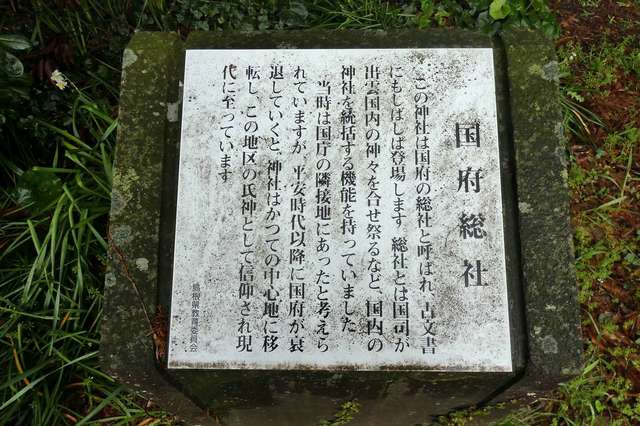 国府総社
この神社は国府の総社と呼ばれ、古文書
にもしばしば登場します。総社とは国司が
出雲国内の神々を合せ祭るなど、国内の
神社を統括する機能を持っていました。
当時は国庁の隣接地にあったと考えら
れていますが、平安時代以降に国府が衰
退していくと、神社はかつての中心地に移
転し、この地区の氏神として信仰され現
代に至っています。
島根県教育委員会